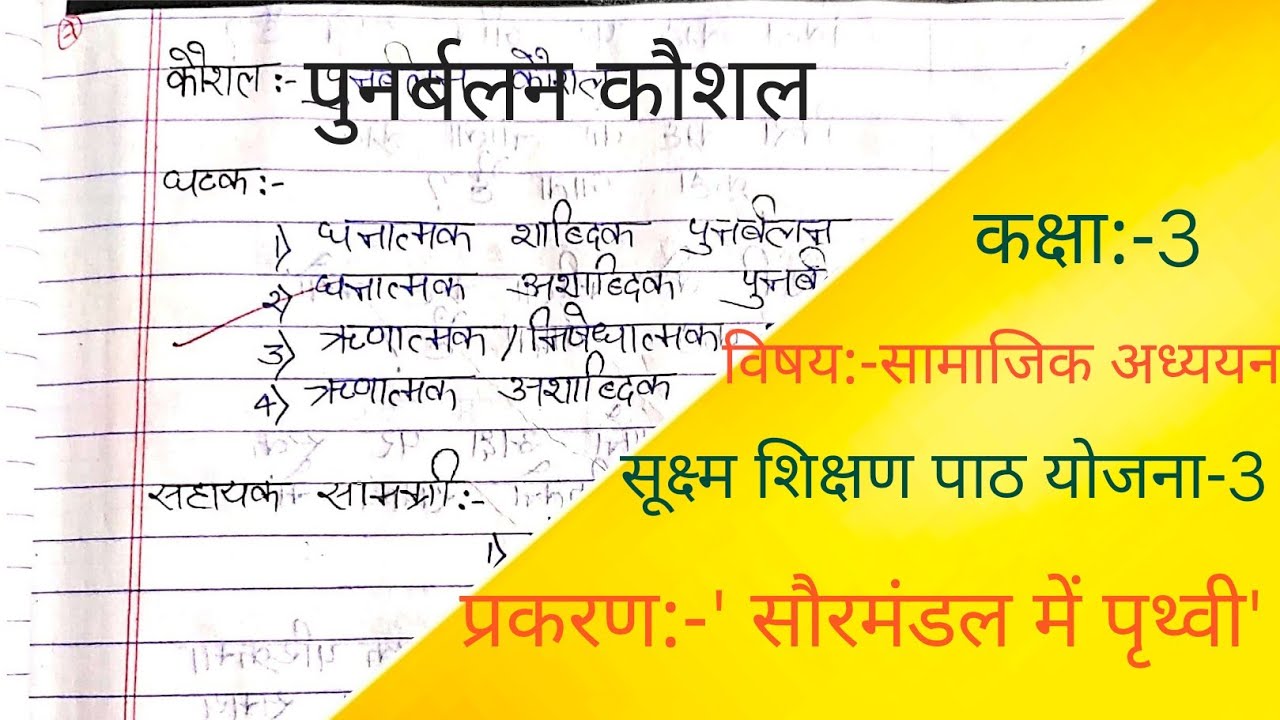 कौशल :- पुनर्बलन कौशल
घटक :-
1) धनात्मक शाब्दिक पुनर्बलन
2) धनात्मक अशाब्दिक
3) ऋणात्मक / निषेधात्मक
4) ऋणात्मक अशाब्दिक
सहायक सामग्री :-
1)
कक्षा:-3
विषय:-सामाजिक अध्ययन
सूक्ष्म शिक्षण पाठ योजना-3
प्रकरण:-' सौरमंडल में पृथ्वी'